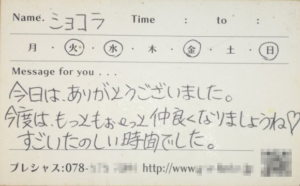 Name. ショコラ Time : to :
月 ・ 火 ・ 水 ・ 木 ・ 金 ・ 土 ・ 日
Message for you . . .
今日は、ありがとうございました。
今度は、もっともぉーっと仲良くなりましょうね♡
すごいたのしい時間でした。
プレシャス:078- http://www